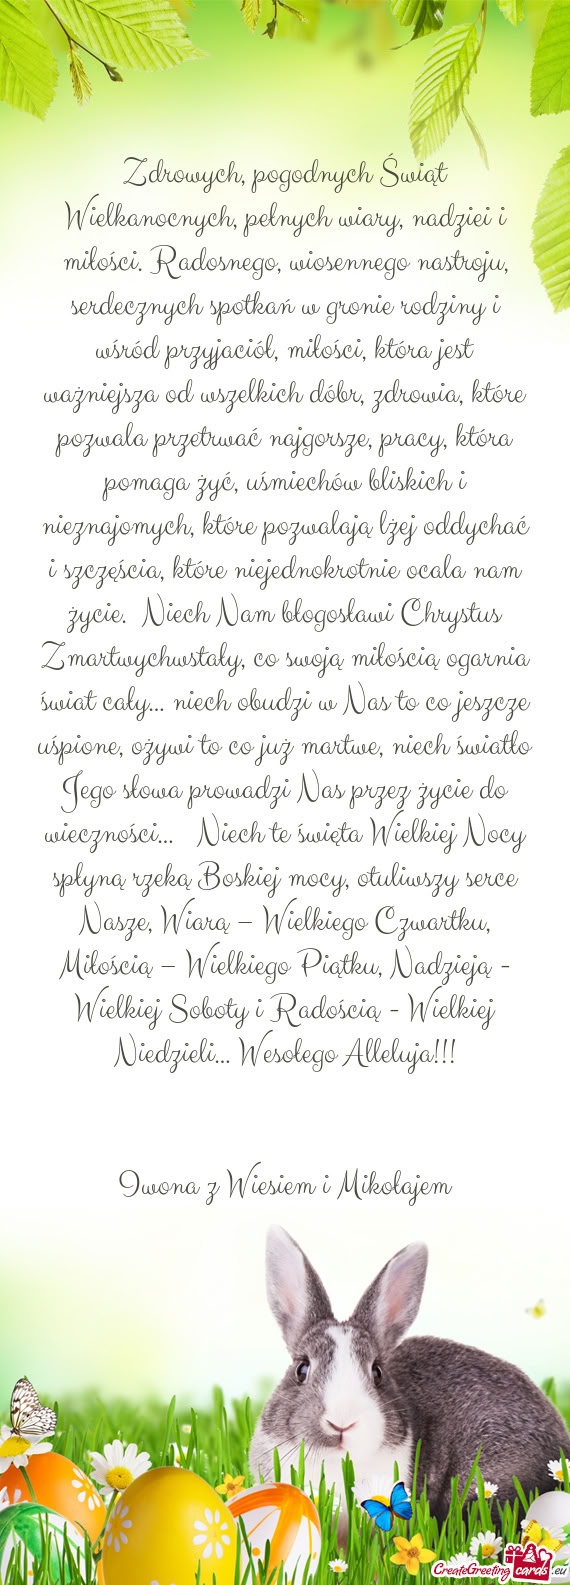 Zdrowych, pogodnych Świąt
Wielkanocnych, pełnych wiary, nadziei i
miłości. Radosnego, wiosennego nastroju,
serdecznych spotkań w gronie rodziny i
wśród przyjaciół, miłości, która jest
ważniejsza od wszelkich dóbr, zdrowia, które
pozwala przetrwać najgorsze, pracy, która
pomaga żyć, uśmiechów bliskich i
nieznajomych, które pozwalają lżej oddychać
i szczęścia, które niejednokrotnie ocala nam
życie. Niech Nam błogosławi Chrystus
Zmartwychwstały, co swoją miłością ogarnia
świat cały... niech obudzi w Nas to co jeszcze
uśpione, ożywi to co już martwe, niech światło
Jego słowa prowadzi Nas przez życie do
wieczności... Niech te święta Wielkiej Nocy
spłyną rzeką Boskiej mocy, otuliwszy serce
Nasze, Wiarą – Wielkiego Czwartku,
Miłością – Wielkiego Piątku, Nadzieją -
Wielkiej Soboty i Radością - Wielkiej
Niedzieli... Wesołego Alleluja!!!
Iwona z Wiesiem i Mikołajem
CreateGreetingcards.eu